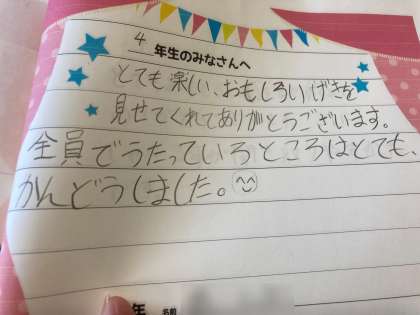 4
年生のみなさんへ
とても楽しい、おもしろいげきを
見せてくれてありがとうございます。
全員でうたっているところはとても、
かんどうしました。
年 名前